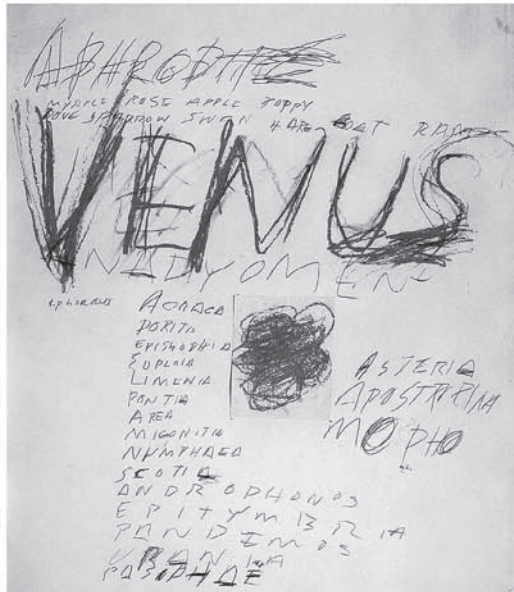 APHRODITE
MYRTLE ROSE APPLE POPPY
DOVE SPARROW SWAN HARE GOAT RAM
VENUS
ANADYOMENE
AORACA
DORITIS
EPISTROPHIA
EUPLOIA
LIMENIA
PONTIA
AREA
MIGONITIS
NUMPHAEA
SCOTIA
ANDROPHONOS
EPITYMBRIA
PANDEMOS
URANIA
PASIPHAE
ASTERIA
APOSTROPHIA
MOPHO